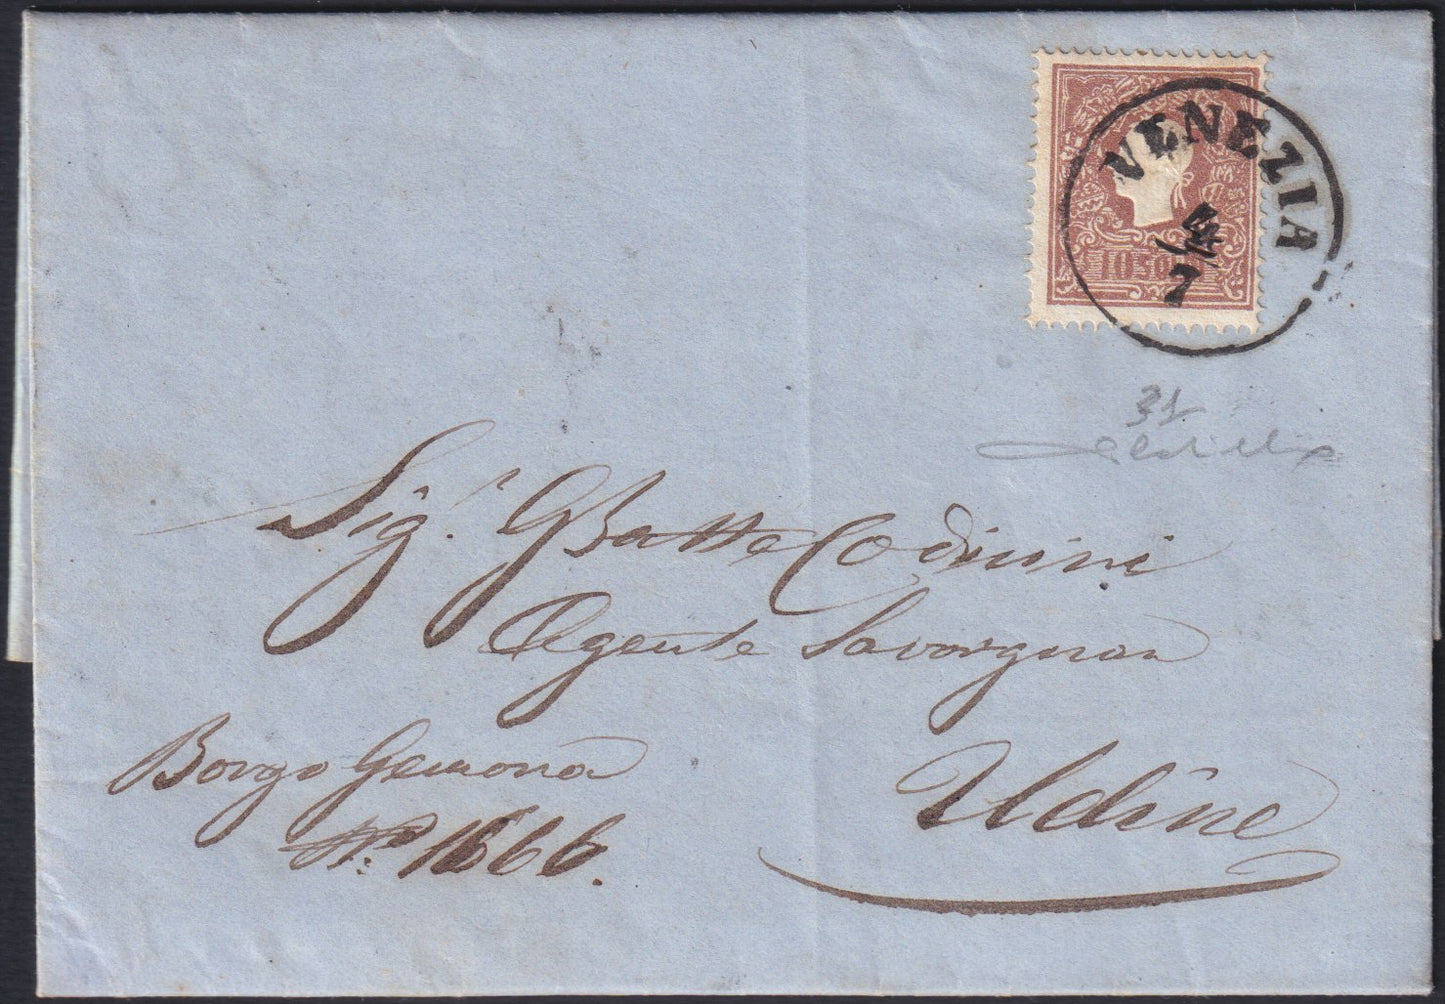 10 SOLDI
VENEZIA
4/7
31
Sig.r GBatta Codicini
Agente Savorgnan
Borgo Gemona
N.o 1666.
Udine